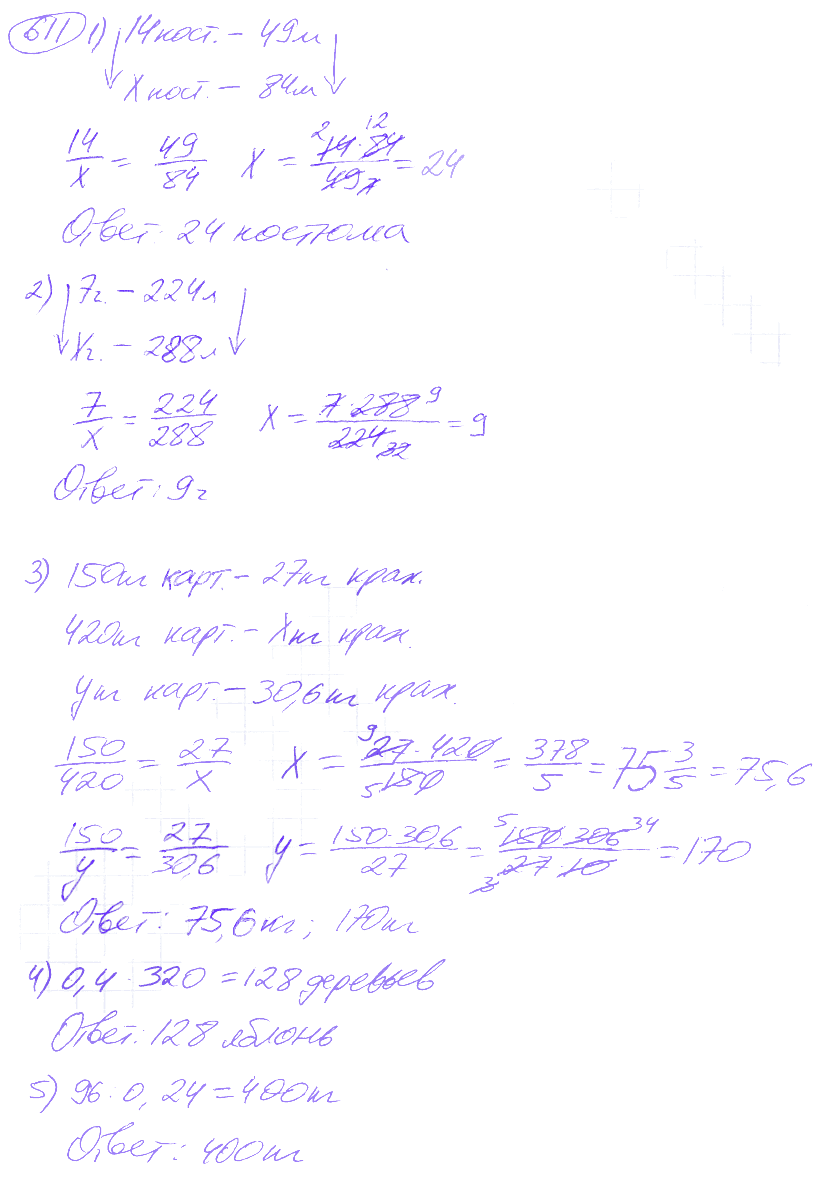 611 1) 14 кост. – 49 м
X кост. – 84 м
14/X = 49/84 X = 14·84/49 = 24
Ответ: 24 костюма
2) 7г. – 224 л
Xг. – 288 л
7/X = 224/288 X = 7·288/224 = 9
Ответ: 9г
3) 150 кг карт. – 27 кг крах.
420 кг карт. – X кг крах.
y кг карт. – 30,6 кг крах.
150/420 = 27/X X = 27·420/150 = 378/5 = 75 3/5 = 75,6
150/y = 27/30,6 y = 150·30,6/27 = 150·306/27·10 = 170
Ответ: 75,6 кг; 170 кг
4) 0,4 · 320 = 128 деревьев
Ответ: 128 яблонь
5) 96 : 0,24 = 400 кг
Ответ: 400 кг